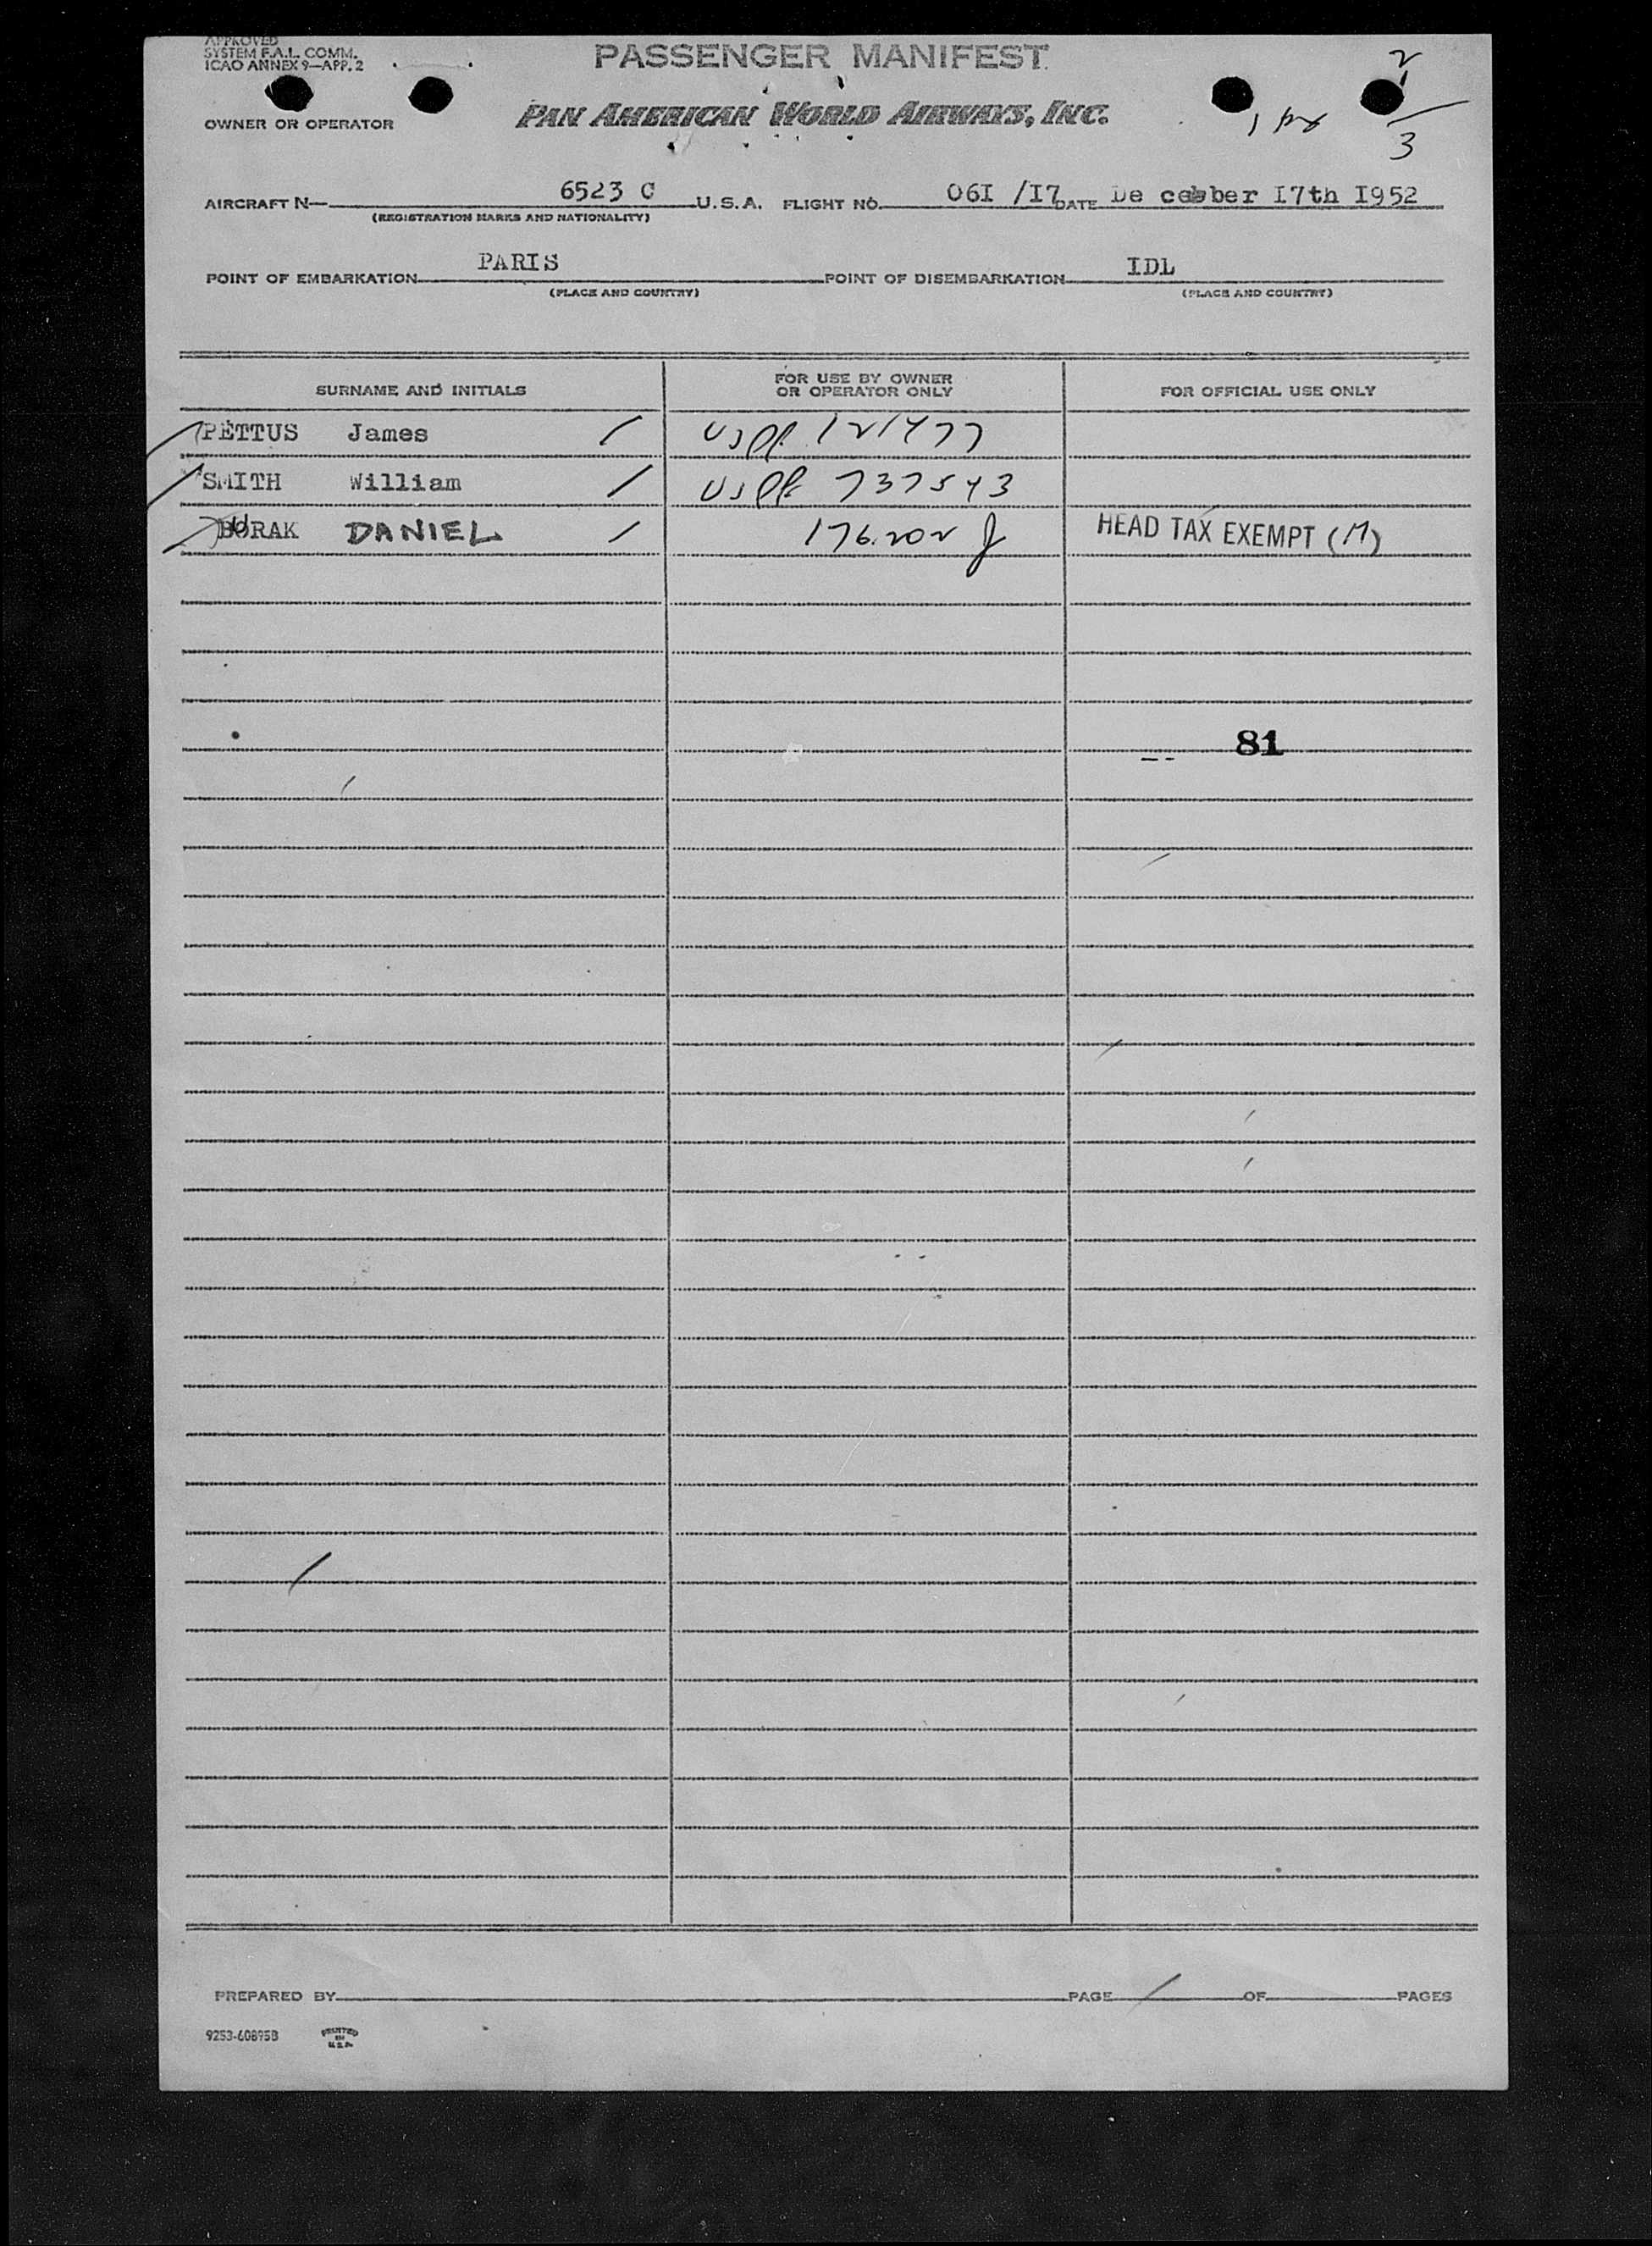 APPROVED
SYSTEM F.A.L. COMM.
ICAO ANNEX 9—APP. 2
PASSENGER MANIFEST
2
1
3
OWNER OR OPERATOR
PAN AMERICAN WORLD AIRWAYS, INC.
AIRCRAFT N— 6523 C U.S.A. FLIGHT NO. 06I /I7 DATE De cember I7th I952
(REGISTRATION MARKS AND NATIONALITY)
POINT OF EMBARKATION PARIS POINT OF DISEMBARKATION IDL
(PLACE AND COUNTRY) (PLACE AND COUNTRY)
SURNAME AND INITIALS FOR USE BY OWNER OR OPERATOR ONLY FOR OFFICIAL USE ONLY
PETTUS James / USPP 121477
SMITH William / USPP 737543
BURAK DANIEL / 176202 J HEAD TAX EXEMPT (M)
81
PREPARED BY PAGE / OF PAGES
9253-60895B PRINTED IN U.S.A.